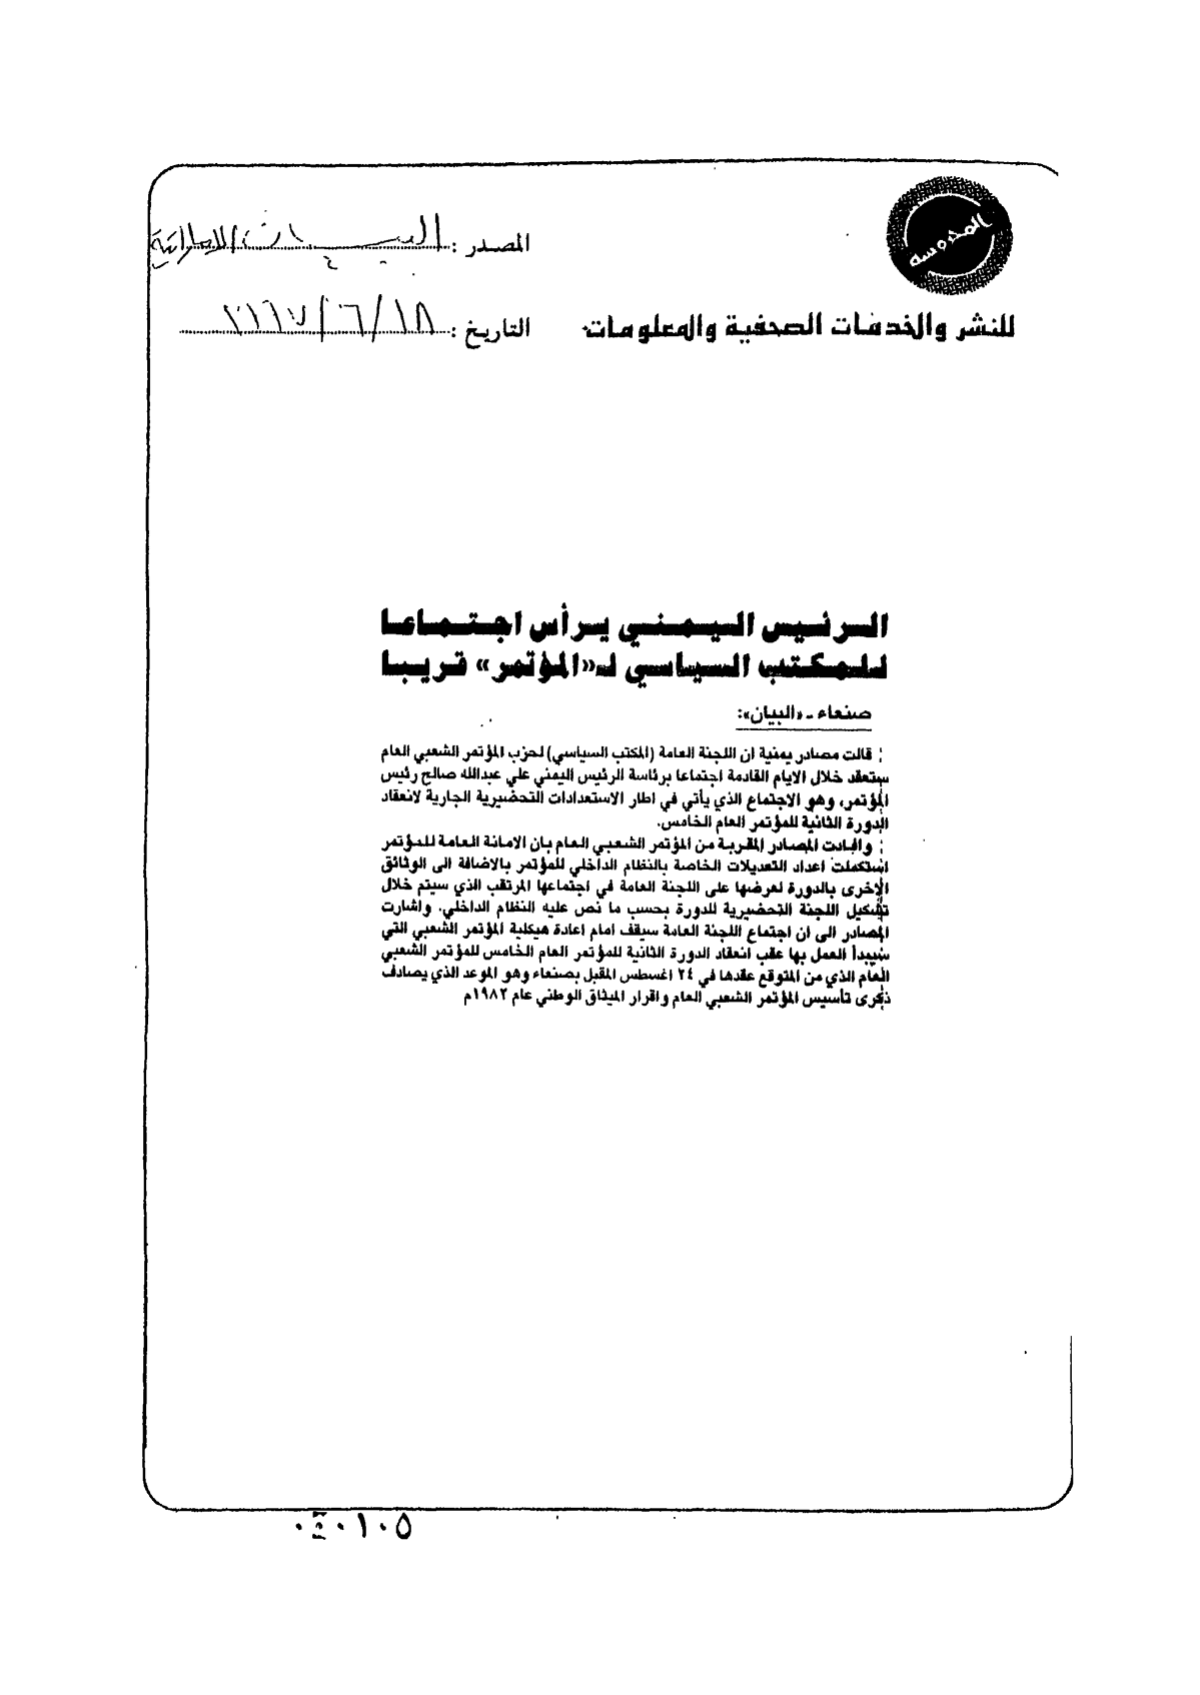 المحروسة
المصدر : البيان الإماراتية
للنشر والخدمات الصحفية والمعلومات
التاريخ : ١٨/٦/
الرئيس اليمني يرأس اجتماعا
للمكتب السياسي لـ«المؤتمر» قريبا
صنعاء - «البيان»:
قالت مصادر يمنية ان اللجنة العامة (المكتب السياسي) لحزب المؤتمر الشعبي العام
ستعقد خلال الايام القادمة اجتماعا برئاسة الرئيس اليمني علي عبدالله صالح رئيس
المؤتمر، وهو الاجتماع الذي يأتي في اطار الاستعدادات التحضيرية الجارية لانعقاد
الدورة الثانية للمؤتمر العام الخامس.
وافادت المصادر المقربة من المؤتمر الشعبي العام بان الامانة العامة للمؤتمر
استكملت اعداد التعديلات الخاصة بالنظام الداخلي للمؤتمر بالاضافة الى الوثائق
الاخرى بالدورة لعرضها على اللجنة العامة في اجتماعها المرتقب الذي سيتم خلال
تشكيل اللجنة التحضيرية للدورة بحسب ما نص عليه النظام الداخلي. واشارت
المصادر الى ان اجتماع اللجنة العامة سيقف امام اعادة هيكلية المؤتمر الشعبي التي
سيبدأ العمل بها عقب انعقاد الدورة الثانية للمؤتمر العام الخامس للمؤتمر الشعبي
العام الذي من المتوقع عقدها في ٢٤ اغسطس المقبل بصنعاء وهو الموعد الذي يصادف
ذكرى تأسيس المؤتمر الشعبي العام واقرار الميثاق الوطني عام ١٩٨٢م